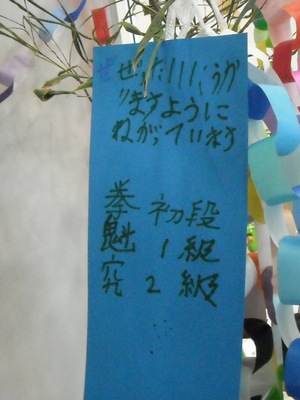 ぜったいにうか
りますように
ねがっています
拳 初段
魁 1級
究 2級